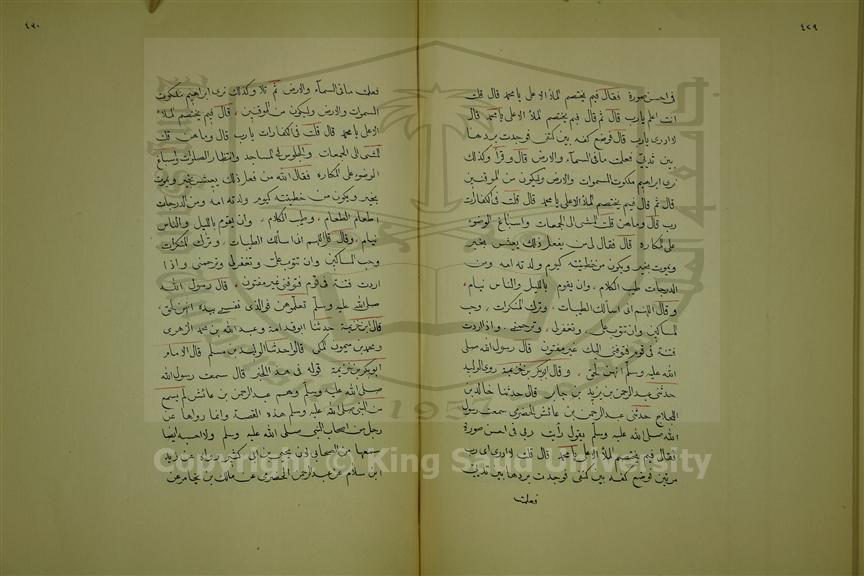 ٤٢٩
فى احسن صورة فقال فيم يختصم الملأ الاعلى يا محمد قال قلت
انت اعلم يارب قال ثم قال فيم يختصم الملأ الاعلى يا محمد قال
لا ادرى يارب قال فوضع كفه بين كتفى فوجدت بردها
بين ثديى فعلمت ما فى السمآء والارض قال وقرأ وكذلك
نرى ابراهيم ملكوت السموات والارض وليكون من الموقنين
قال ثم قال فيم يختصم الملأ الاعلى يا محمد قال قلت فى الكفارات
رب قال وما هن قلت المشى الى الجمعات واسباغ الوضوء
على المكاره قال فقال لى من يفعل ذلك يعيش بخير
ويموت بخير ويكون من خطيئته كيوم ولدته امه ومن
الدرجات طيب الكلام وان يقوم بالليل والناس نيام
وقال اللهم انى اسألك الطيبات وترك المنكرات وحب
المساكين وان تتوب على وتغفر لى وترحمنى واذا اردت
فتنة فى قوم فتوفنى اليك غير مفتون قال رسول الله صلى
الله عليه وسلم انهن لحق وقال ابو بكر بن خزيمة روى الوليد
حدثنى عبد الرحمن بن يزيد بن جابر قال حدثنا خالد بن
اللجلاج حدثنى عبد الرحمن بن عائش الحضرمى سمعت رسول
الله صلى الله عليه وسلم يقول رأيت ربى فى احسن صورة
فقال فيم يختصم الملأ الاعلى يا محمد قال قلت لا ادرى اى رب
مرتين فوضع كفه بين كتفى فوجدت بردها بين ثديى
فعلمت
٤٣٠
فعلمت ما فى السمآء والارض ثم تلا وكذلك نرى ابراهيم ملكوت
السموات والارض وليكون من الموقنين قال فيم يختصم الملاء
الاعلى يا محمد قال قلت فى الكفارات يا رب قال وما هن قلت
المشى الى الجمعات والجلوس فى المساجد وانتظار الصلوات واسباغ
الوضوء على المكاره فقال الله من فعل ذلك يعيش بخير ويموت
بخير ويكون من خطيئته كيوم ولدته امه ومن الدرجات
اطعام الطعام وطيب الكلام وان يقوم بالليل والناس
نيام وقال قل اللهم انى اسألك الطيبات وترك المنكرات
وحب المساكين وان تتوب على وتغفر لى وترحمنى واذا
اردت فتنة فى قوم فتوفنى غير مفتون قال رسول الله
صلى الله عليه وسلم تعلموهن فوالذى نفسى بيده انهن لحق
قال ابن خزيمة حدثنا ابو قدامة وعبد الله بن محمد الزهرى
ومحمد بن ميمون المكى قالوا حدثنا الوليد بن مسلم قال الامام
ابو بكر بن خزيمة قوله فى هذا الخبر قال سمعت رسول الله
صلى الله عليه وسلم وهم عبد الرحمن بن عائش لم يسمع
من النبى صلى الله عليه وسلم هذه القصة وانما رواها عن
رجل من اصحاب النبى صلى الله عليه وسلم ولا احسبه ايضا
سمعها من الصحابى لان يحيى بن ابى كثير رواه عن زيد
ابن سلام عن عبد الرحمن الحضرمى عن مالك بن يخامر عن
Copyright © King Saud University
1957